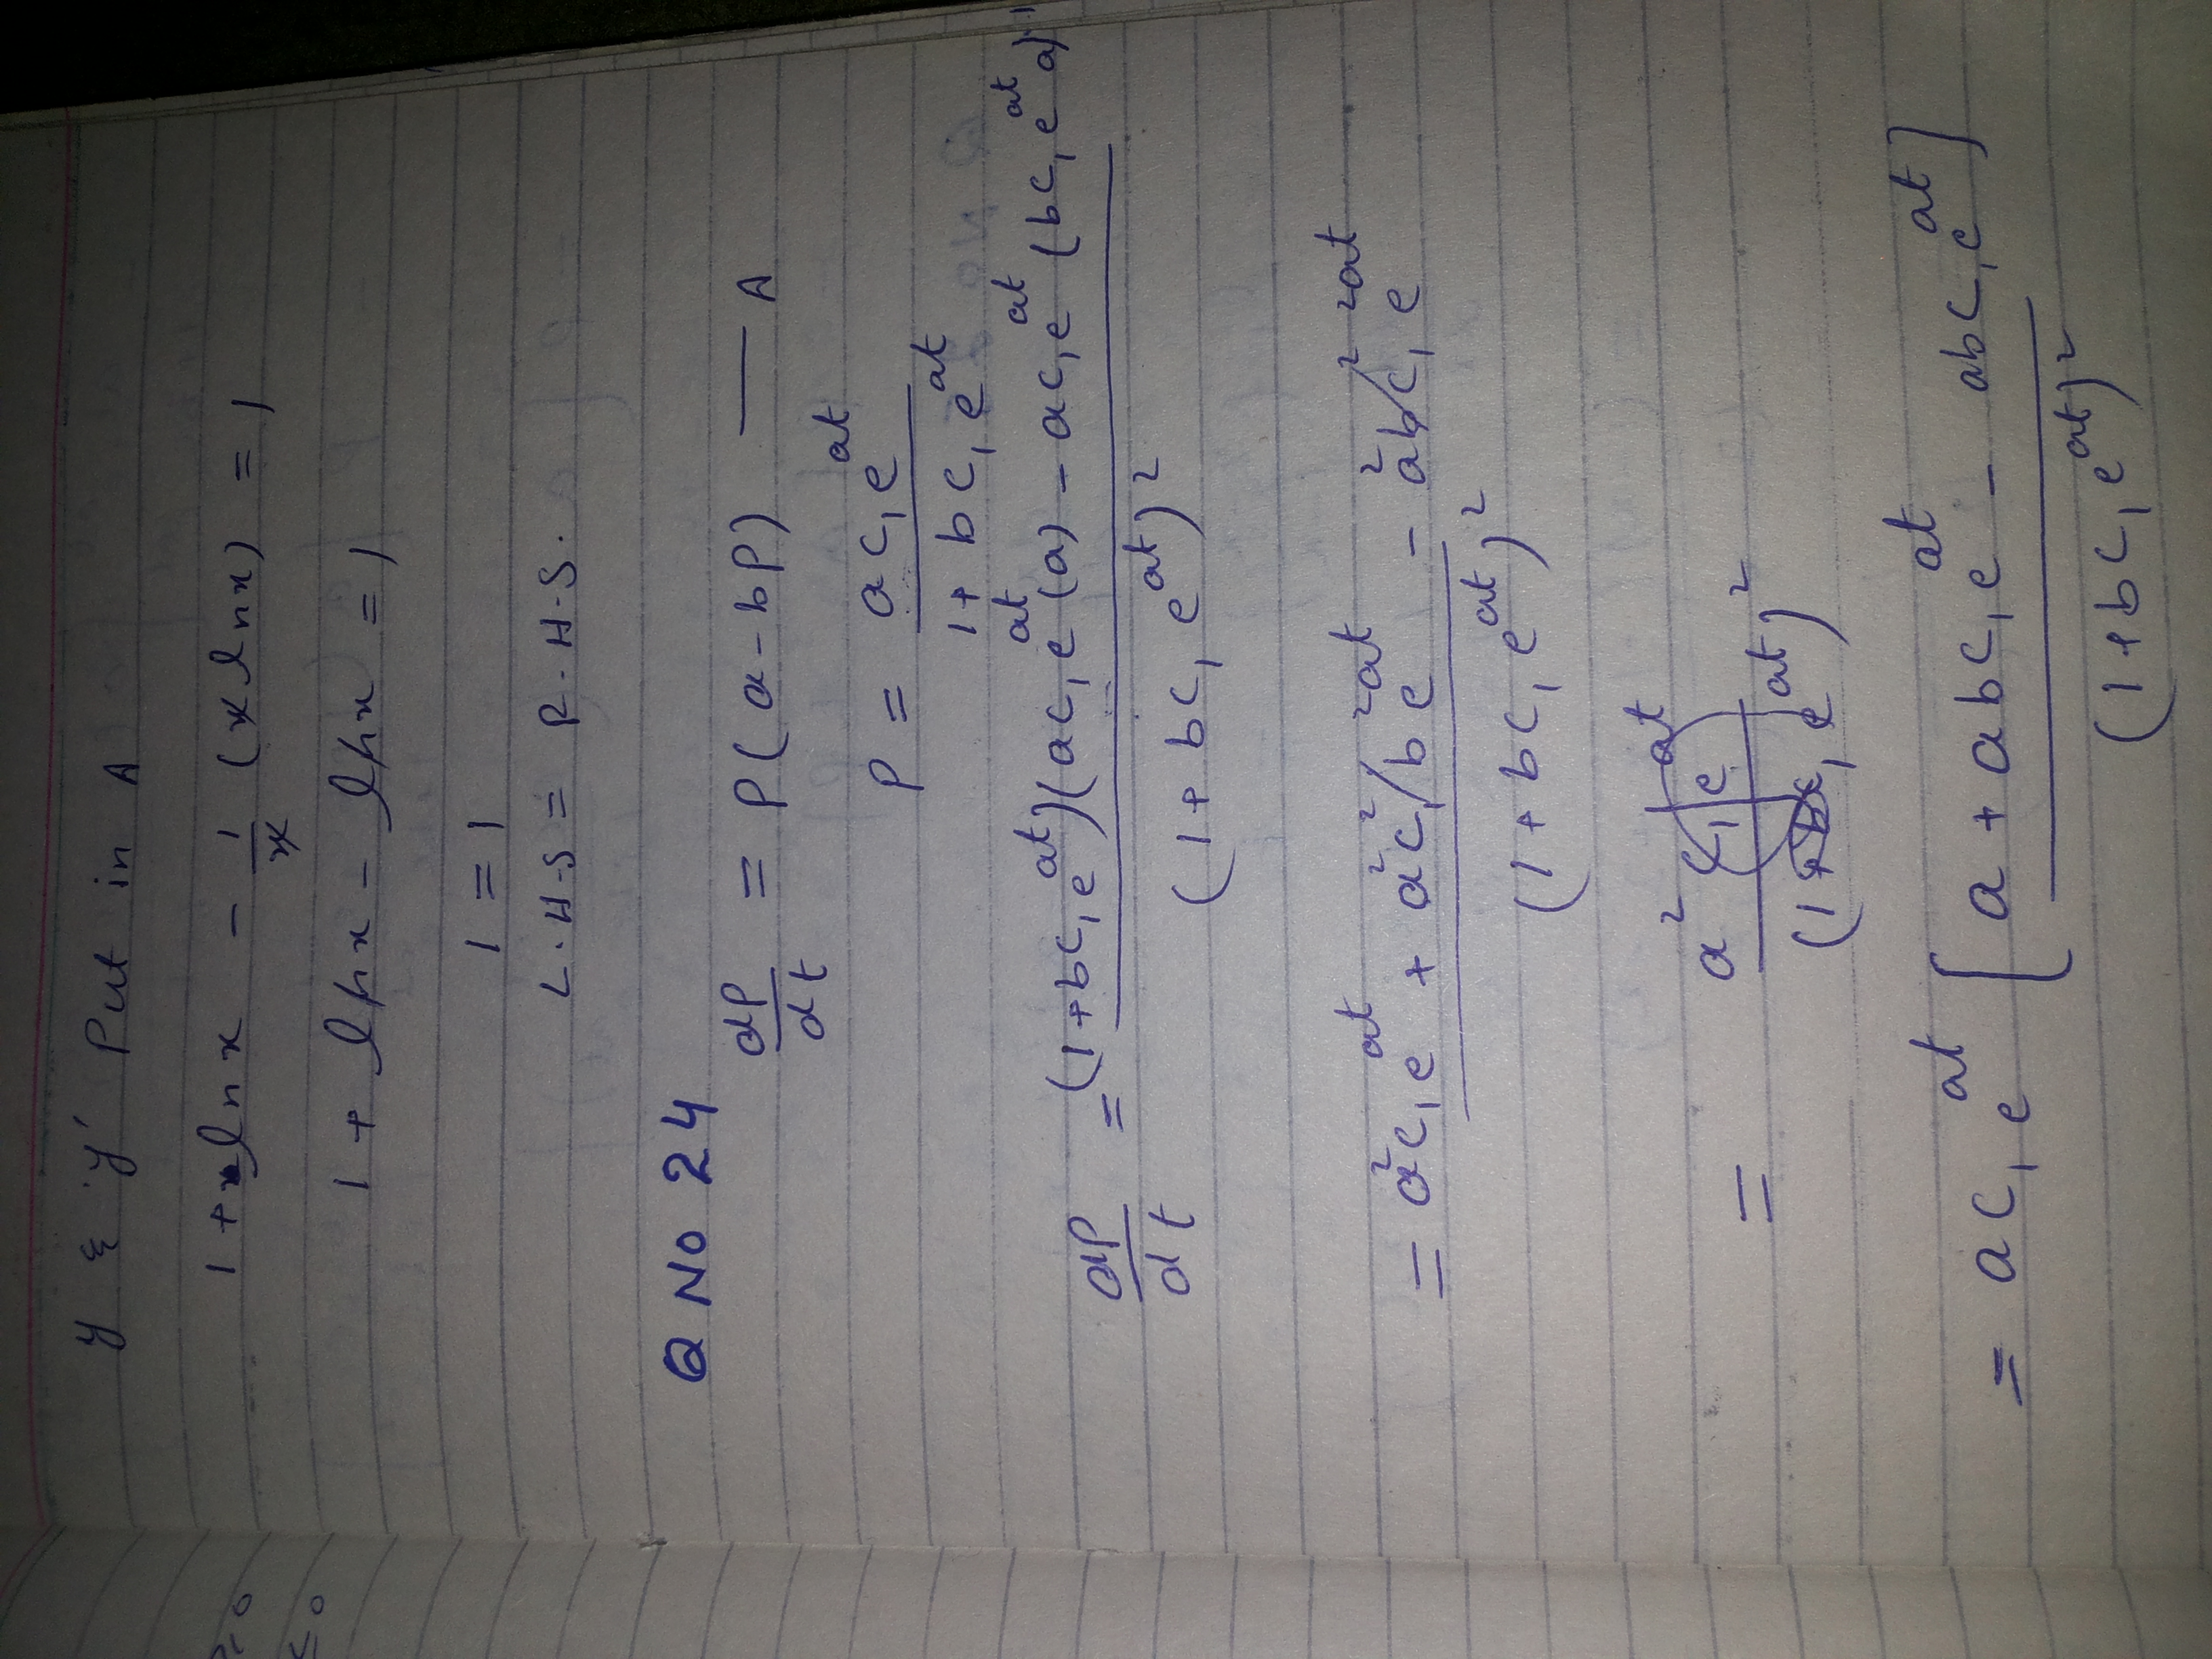 y & y' Put in A
1 + lnx - 1/x (x lnx) = 1
1 + lnx - lnx = 1
1 = 1
L.H.S = R.H.S.
Q No 24
dP/dt = P(a - bP) — A
P = ac₁e^at / 1 + bc₁e^at
dP/dt = (1+bc₁e^at)(ac₁e^at(a) - ac₁e^at(bc₁e^at a) / (1 + bc₁e^at)²
= a²c₁e^at + a²c₁²be^2at - a²bc₁²e^2at / (1 + bc₁e^at)²
= a²c₁e^at / (1+bc₁e^at)²
= ac₁e^at [a + abc₁e^at - abc₁e^at] / (1+bc₁e^at)²